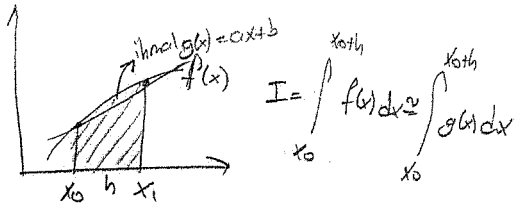 ihmal g(x) = ax+b
f(x)
x0 h x1
I = ∫_{x0}^{x0+h} f(x) dx ≅ ∫_{x0}^{x0+h} g(x) dx